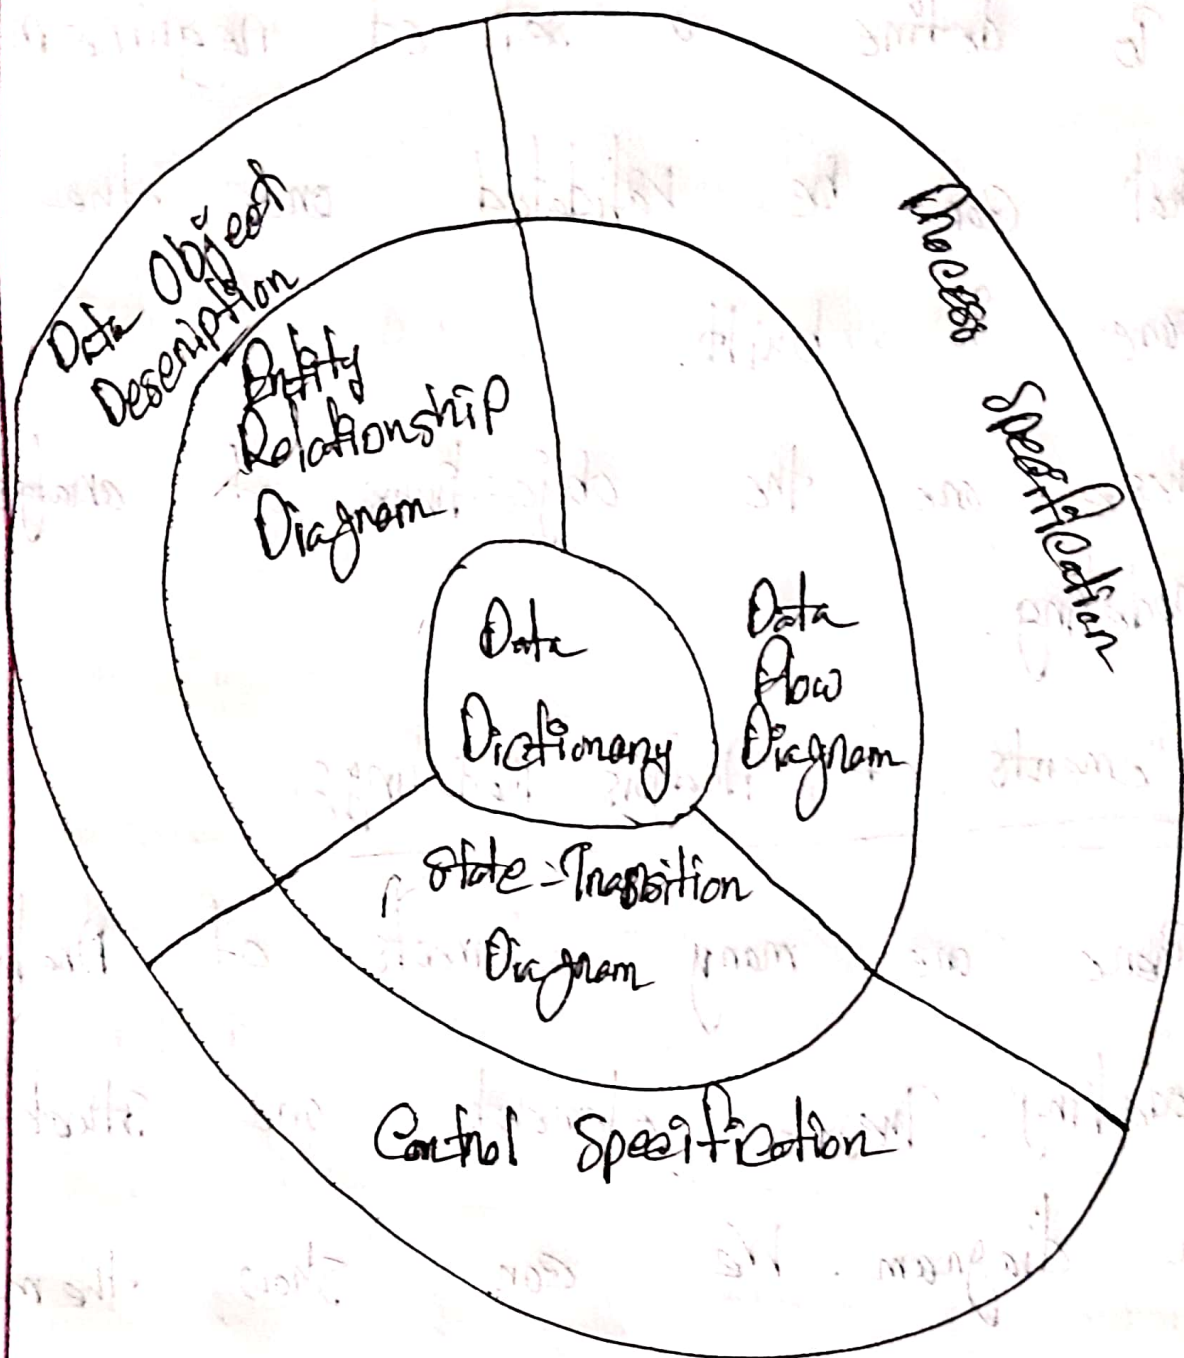 Data Object
Description
Process Specification
Entity
Relationship
Diagram.
Data
Dictionary
Data
Flow
Diagram
State-Transition
Diagram
Control Specification